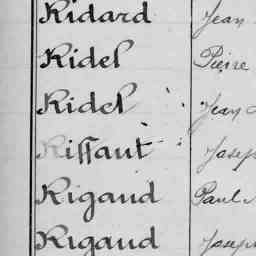 Ridard Jean
Ridel Pierre
Ridel Jean
Riffaut Josep
Rigaud Paul
Rigaud Josep